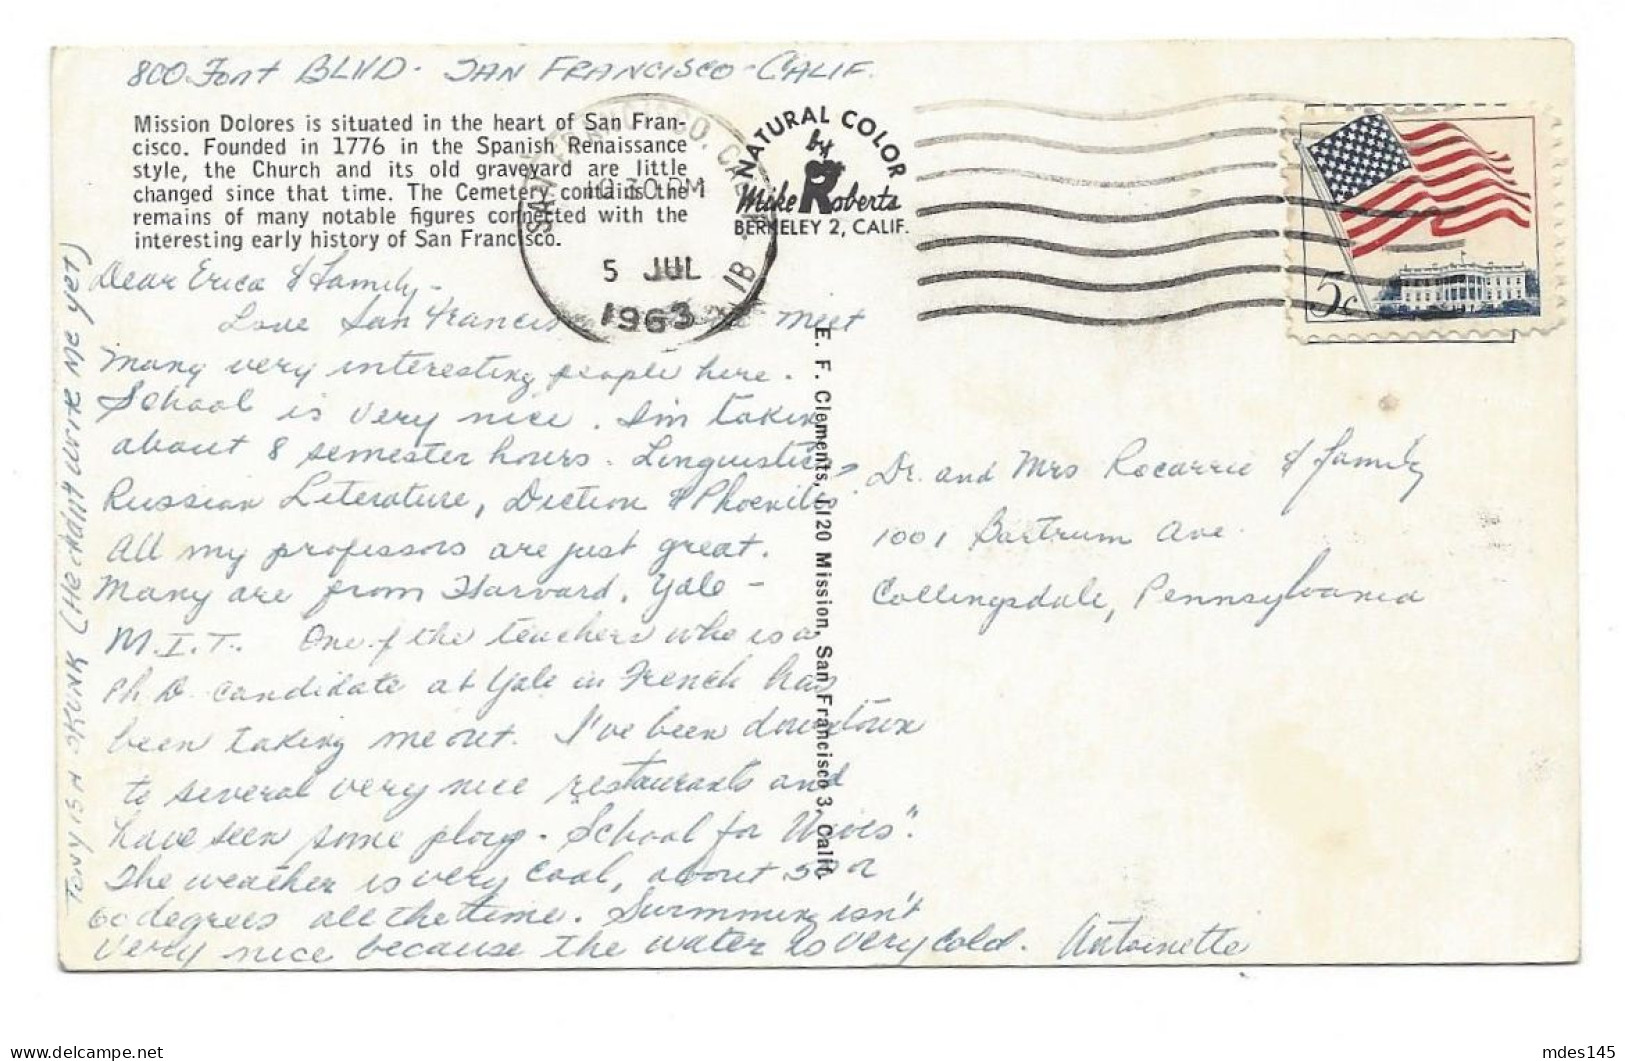 800 Font BLVD - SAN FRANCISCO - CALIF.
Mission Dolores is situated in the heart of San Fran-
cisco. Founded in 1776 in the Spanish Renaissance
style, the Church and its old graveyard are little
changed since that time. The Cemetery contains the
remains of many notable figures connected with the
interesting early history of San Francisco.
SAN FRANCISCO, CALIF.
10 30 PM
5 JUL
1963
1B
NATURAL COLOR
by
Mike Roberts
BERKELEY 2, CALIF.
5c
Dear Erica & Family -
Love San Francis meet
many very interesting people here.
School is very nice. I'm taking
about 8 semester hours. Linguistics,
Russian Literature, Diction &
All my professors are just great.
Many are from Harvard, Yale -
M.I.T. One of the teachers who is a
Ph D. candidate at Yale in French has
been taking me out. I've been downtown
to several very nice restaurants and
have seen some plays - School for Wives".
The weather is very cool, about 50 or
60 degrees all the time. Swimming isn't
very nice because the water is very cold. Antoinette
TONY IS A SKUNK (HE didn't WRITE ME yet)
E. F. Clements, 1120 Mission, San Francisco 3, Calif.
Dr. and Mrs Rocarrie & family
1001 Bartrum Ave.
Collingsdale, Pennsylvania
mdes145